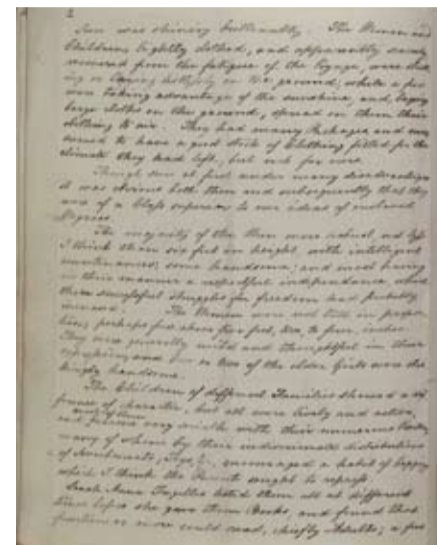 2
Sun was shining brilliantly. The Women and
Children lightly clothed, and apparently scarcely
recovered from the fatigue of the Voyage, were
ing or laying listlessly on the ground; while a few
were taking advantage of the sunshine, and, laying
large cloths on the ground, spread on them their
clothing to air. They had many Packages, and
seemed to have a good stock of Clothing fitted for the
climate they had left, but not for ours.
Though seen at first under many disadvantages
it was obvious both then and subsequently that they
were of a Class superior to our ideas of enslaved
Negroes.
The majority of the Men were robust, not less
I think than six feet in height, with intelligent
countenances; some handsome; and most having
in their manner a respectful independence, which
their successful struggles for freedom had probably
The Women were not tall in propor
tion; perhaps five feet two, to four, inches.
They were generally mild and thoughtful in their
expression, and one or two of the elder Girls were
handsome.
The Children of different Families shewed a
ference of character, but all were lively and active,
and very with their numerous
many of whom by their indiscriminate distribution
of Sweetmeats, Toys, &c., encouraged a habit of begging
which I think the Parents sought to repress.
Sarah Anna listed them all at different
times before she gave them Books, and found that
or more could read, chiefly Adults; a few